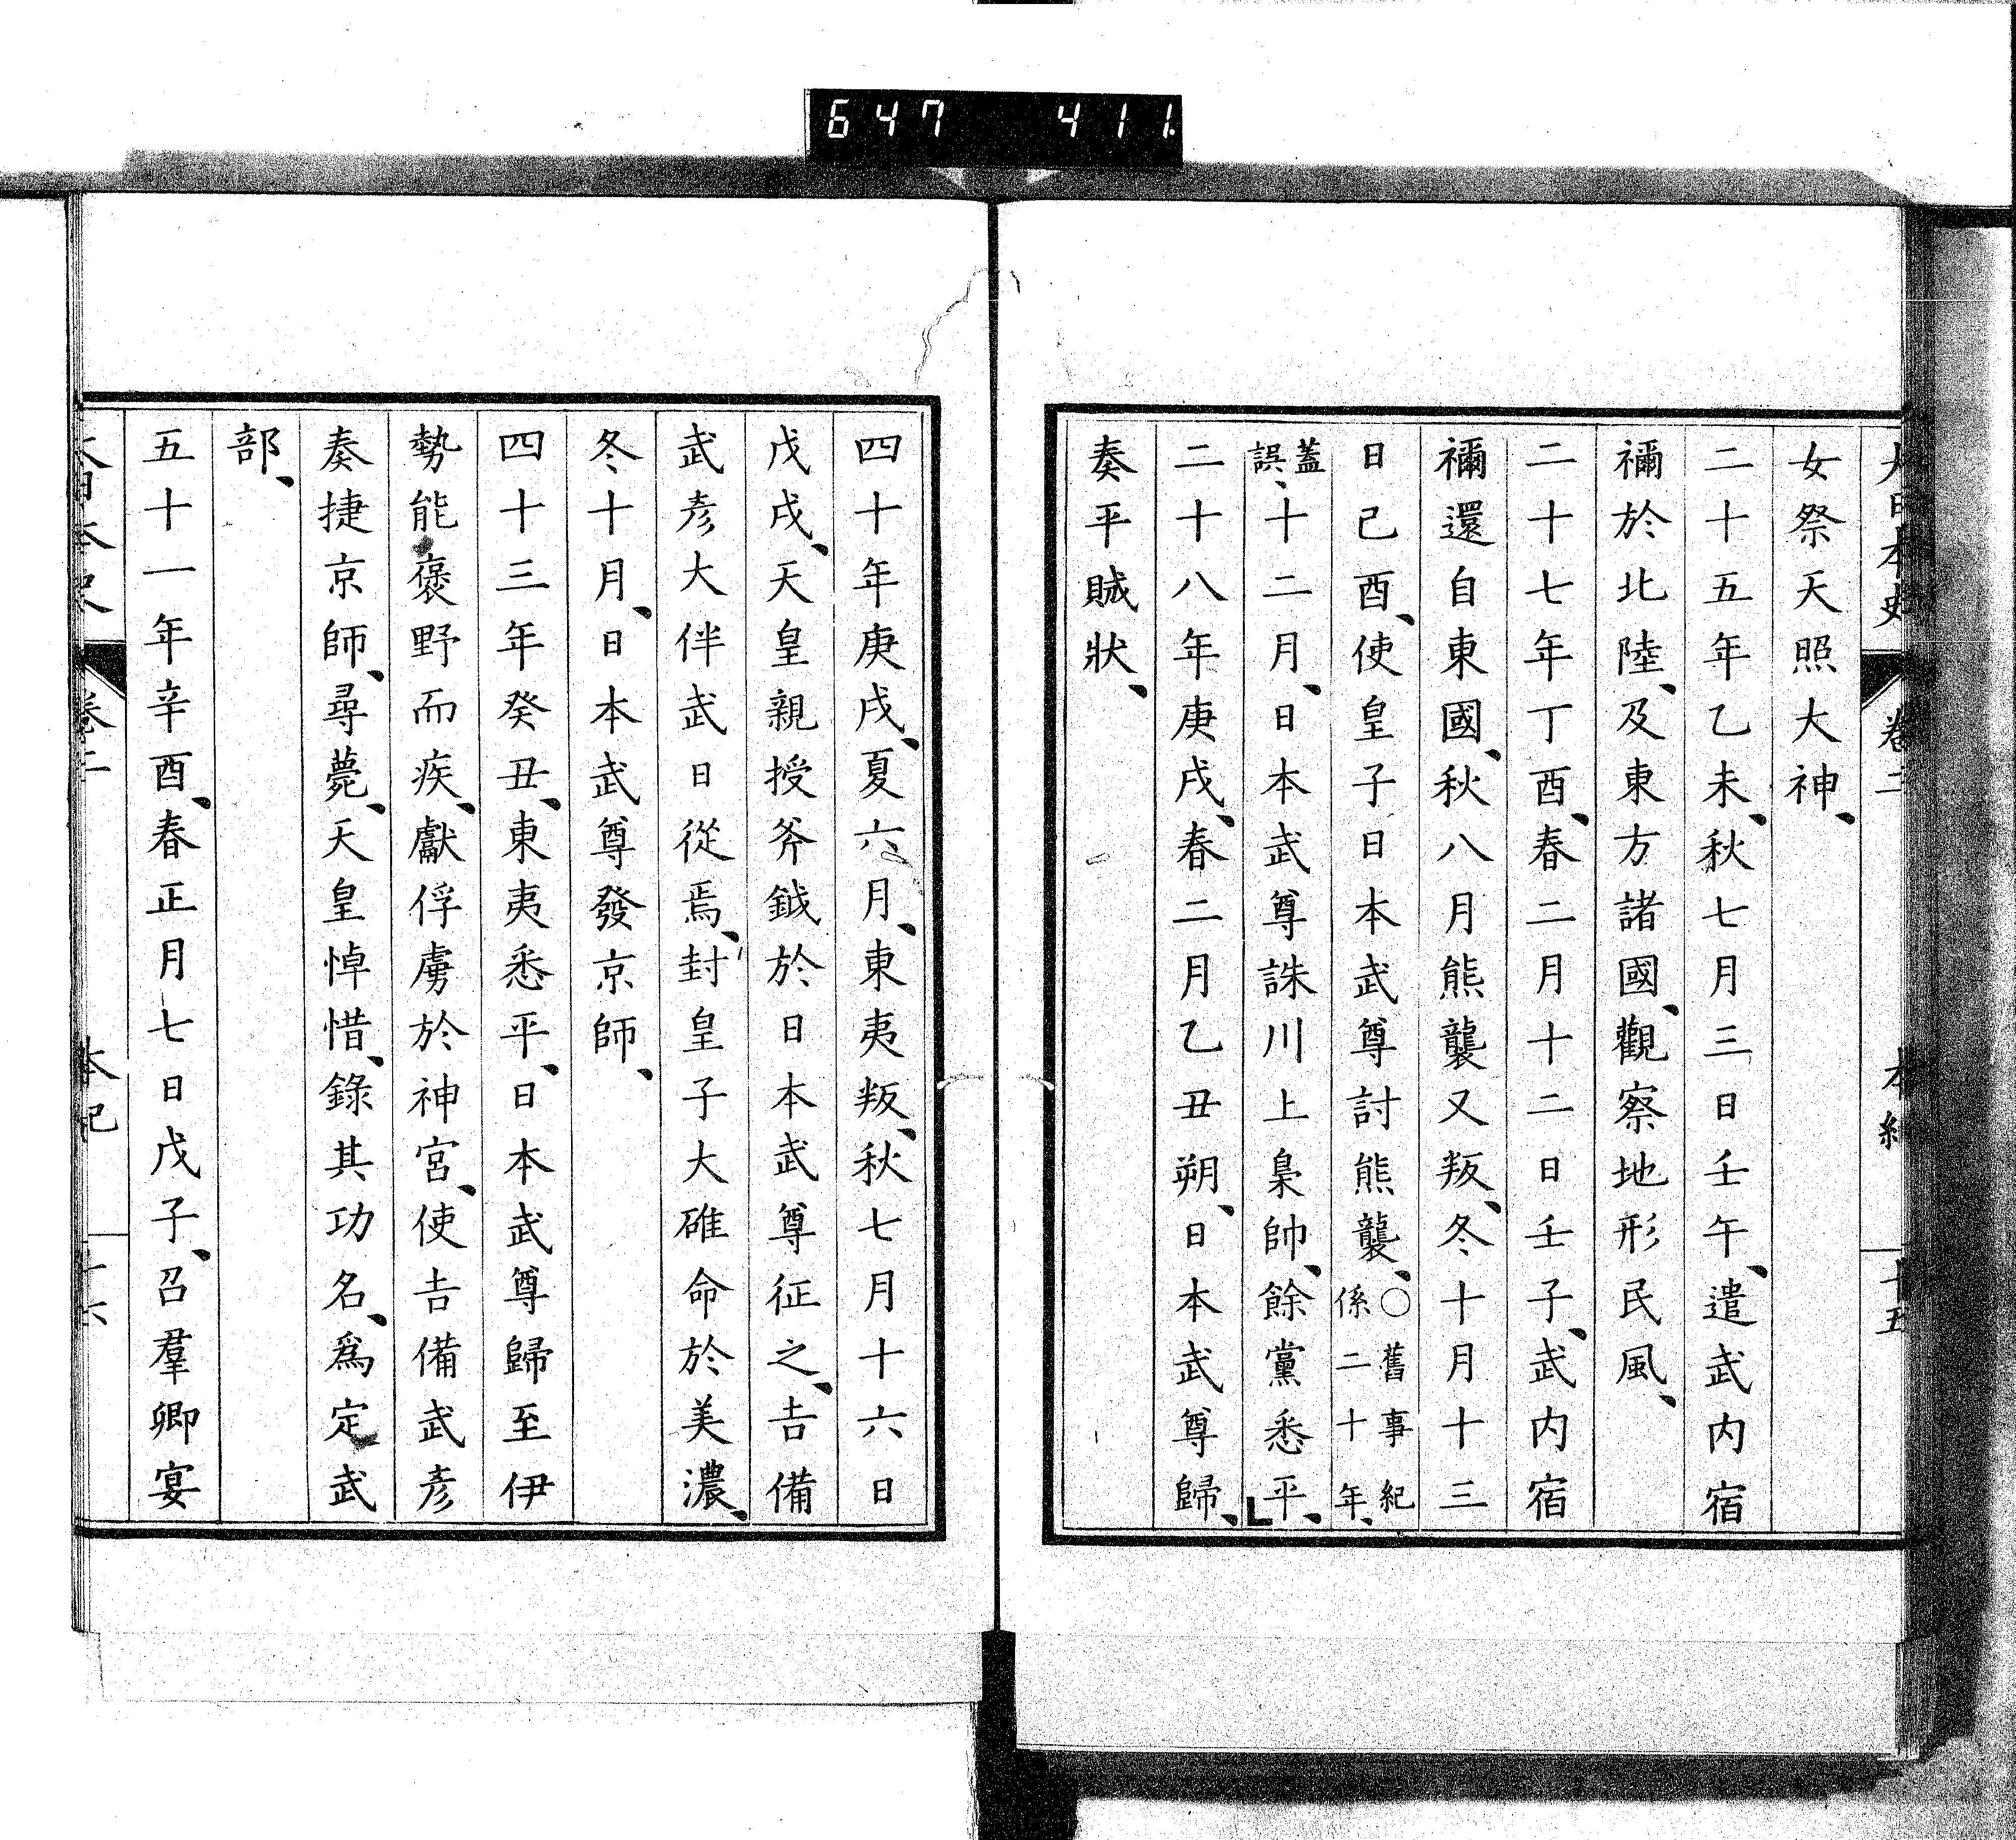 647 411
大日本史 卷二 本紀 十五
女祭天照大神、
二十五年乙未、秋七月三日壬午、遣武内宿
禰於北陸、及東方諸國、觀察地形民風、
二十七年丁酉、春二月十二日壬子、武内宿
禰還自東國、秋八月熊襲又叛、冬十月十三
日己酉、使皇子日本武尊討熊襲、○舊事紀係二十年、
蓋誤、十二月、日本武尊誅川上梟帥、餘黨悉平、
二十八年庚戌、春二月乙丑朔、日本武尊歸、
奏平賊狀、
四十年庚戌、夏六月、東夷叛、秋七月十六日
戊戌、天皇親授斧鉞於日本武尊征之、吉備
武彥大伴武日從焉、封皇子大碓命於美濃、
冬十月、日本武尊發京師、
四十三年癸丑、東夷悉平、日本武尊歸至伊
勢能褒野而疾、獻俘虜於神宮、使吉備武彥
奏捷京師、尋薨、天皇悼惜、錄其功名、爲定武
部、
五十一年辛酉、春正月七日戊子、召羣卿宴
大日本史 卷二 本紀 十六